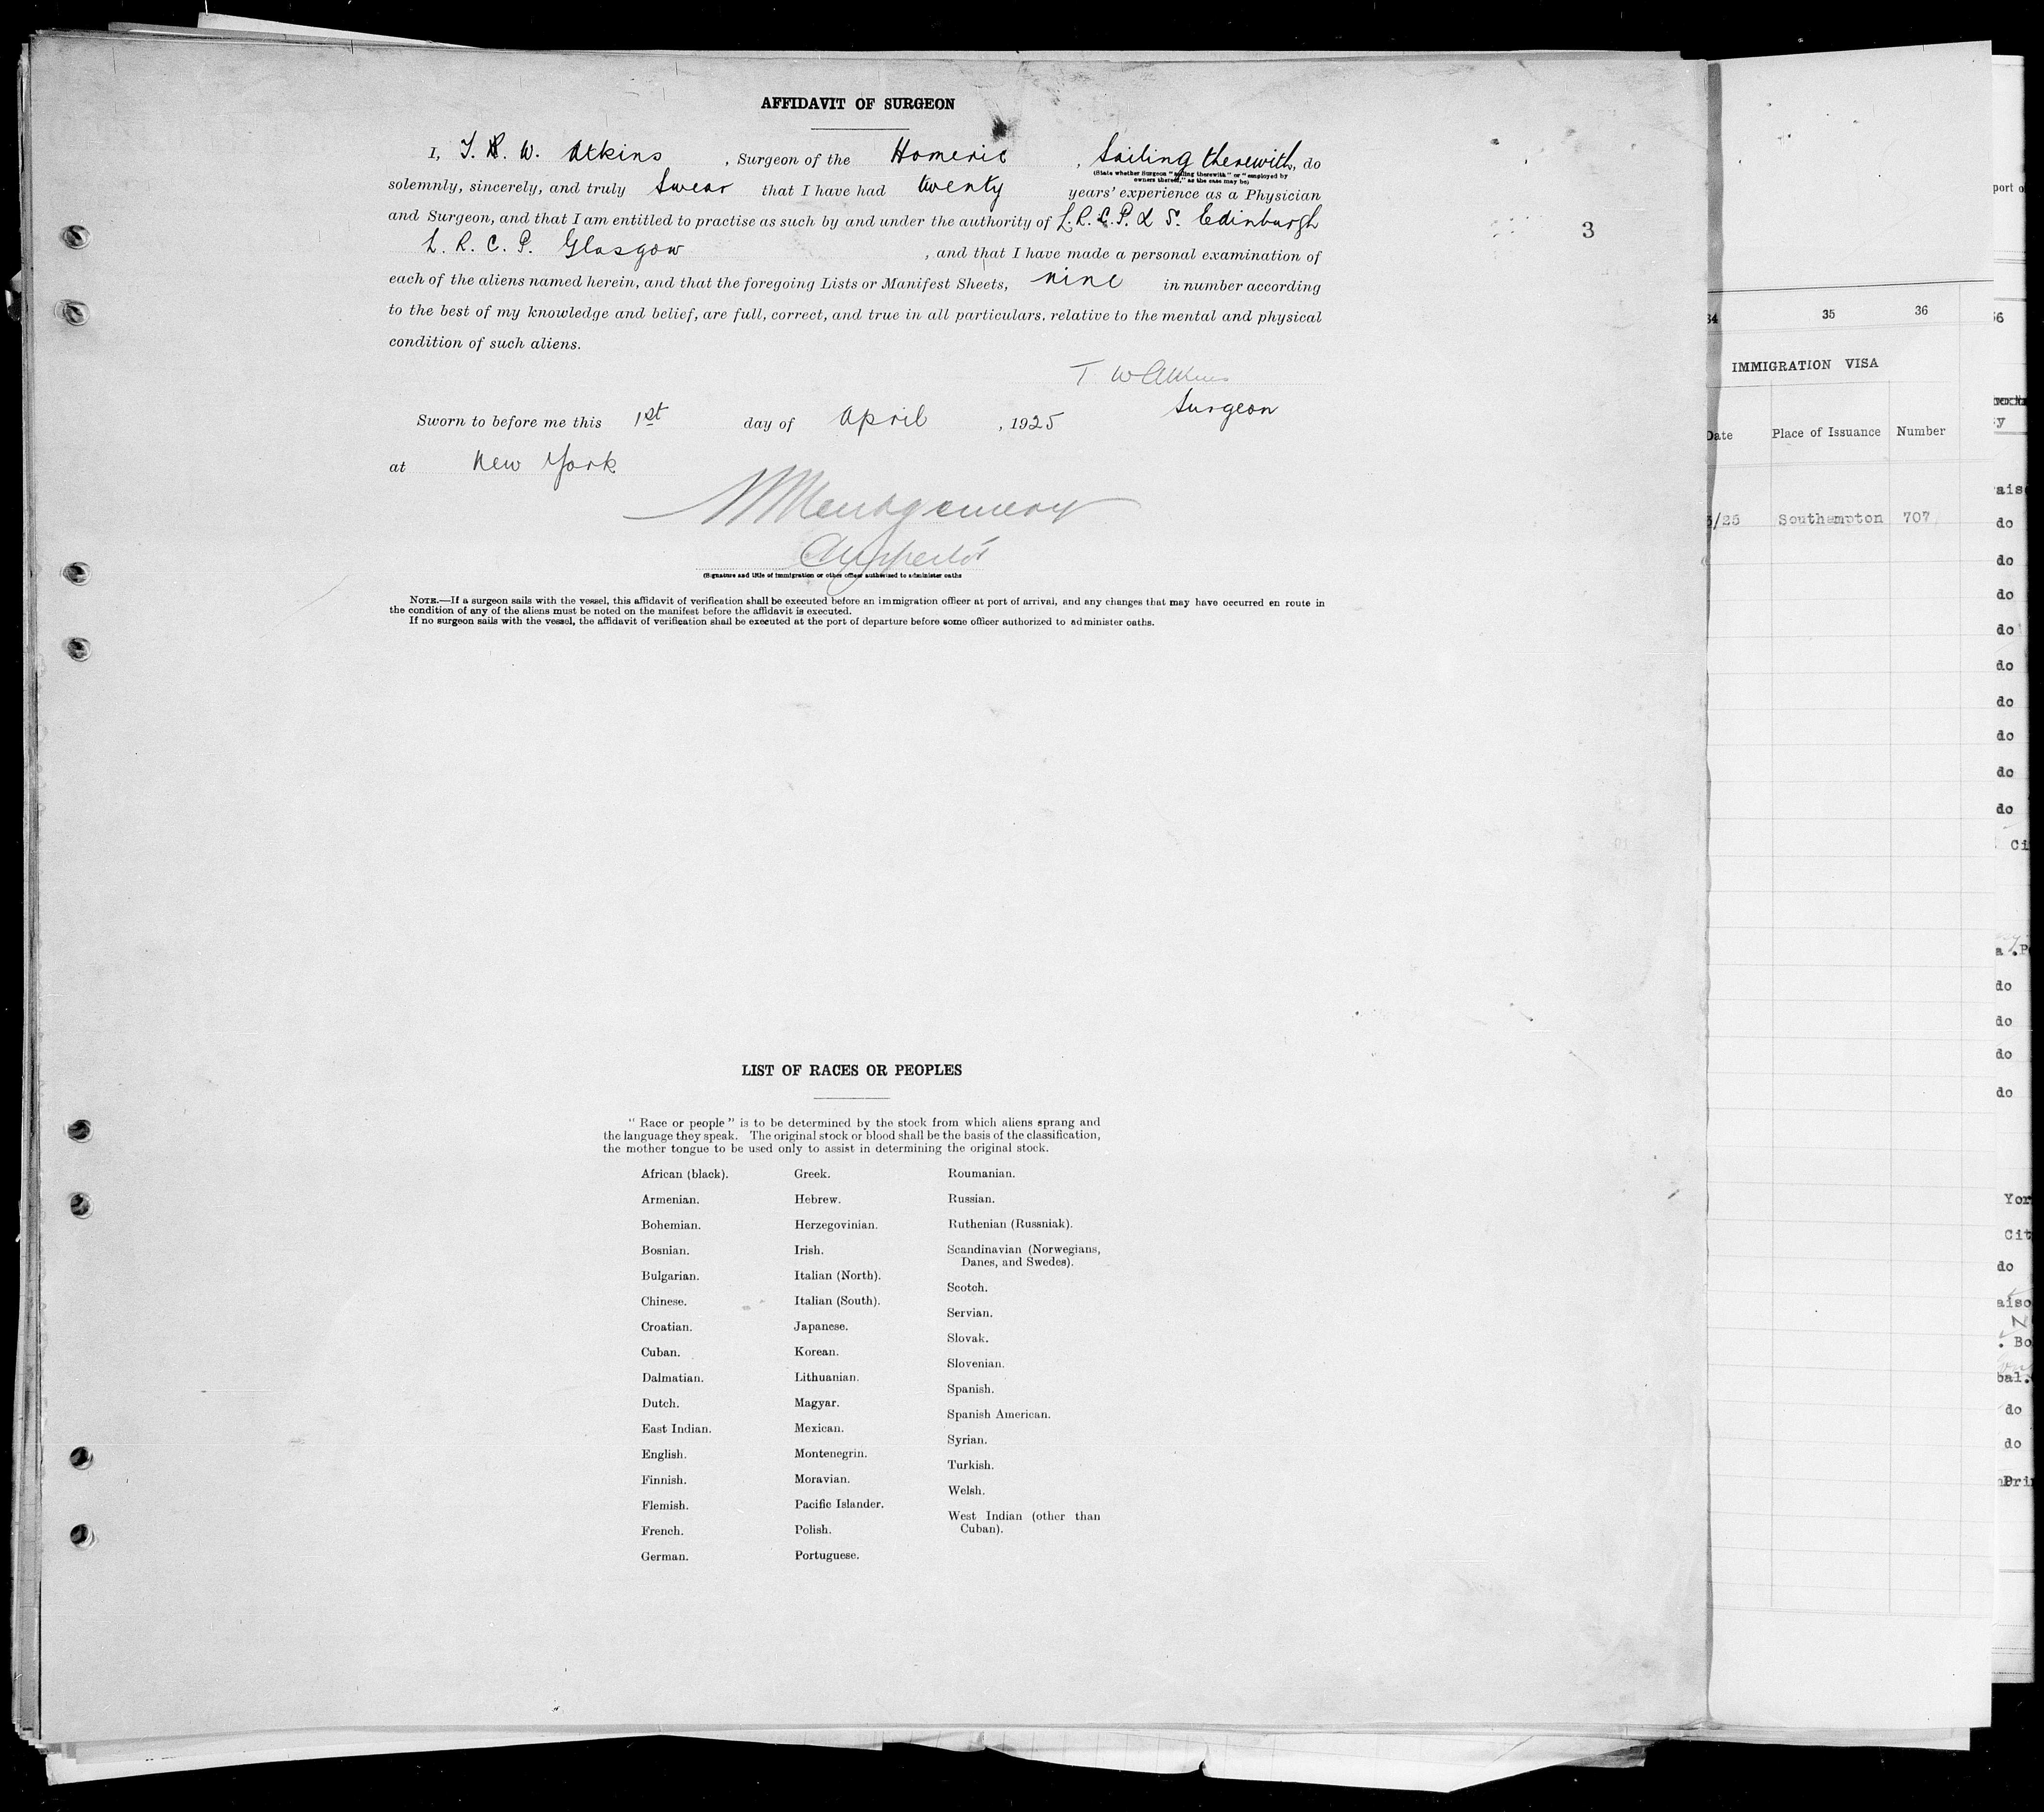 AFFIDAVIT OF SURGEON
I, T. R. W. Atkins, Surgeon of the Homeric, Sailing therewith, do
(State whether Surgeon "sailing therewith" or "employed by
owners thereof," as the case may be)
solemnly, sincerely, and truly Swear that I have had twenty years' experience as a Physician
and Surgeon, and that I am entitled to practise as such by and under the authority of L.R.C.P. & S. Edinburgh
L. R. C. P. Glasgow, and that I have made a personal examination of
each of the aliens named herein, and that the foregoing Lists or Manifest Sheets, nine in number according
to the best of my knowledge and belief, are full, correct, and true in all particulars, relative to the mental and physical
condition of such aliens.
T W Atkins
Surgeon
Sworn to before me this 1st day of April, 1925
at New York
Montgomery
(Signature and title of immigration or other officer authorised to administer oaths
NOTE.—If a surgeon sails with the vessel, this affidavit of verification shall be executed before an immigration officer at port of arrival, and any changes that may have occurred en route in
the condition of any of the aliens must be noted on the manifest before the affidavit is executed.
If no surgeon sails with the vessel, the affidavit of verification shall be executed at the port of departure before some officer authorized to administer oaths.
3
LIST OF RACES OR PEOPLES
"Race or people" is to be determined by the stock from which aliens sprang and
the language they speak. The original stock or blood shall be the basis of the classification,
the mother tongue to be used only to assist in determining the original stock.
African (black).
Armenian.
Bohemian.
Bosnian.
Bulgarian.
Chinese.
Croatian.
Cuban.
Dalmatian.
Dutch.
East Indian.
English.
Finnish.
Flemish.
French.
German.
Greek.
Hebrew.
Herzegovinian.
Irish.
Italian (North).
Italian (South).
Japanese.
Korean.
Lithuanian.
Magyar.
Mexican.
Montenegrin.
Moravian.
Pacific Islander.
Polish.
Portuguese.
Roumanian.
Russian.
Ruthenian (Russniak).
Scandinavian (Norwegians,
Danes, and Swedes).
Scotch.
Servian.
Slovak.
Slovenian.
Spanish.
Spanish American.
Syrian.
Turkish.
Welsh.
West Indian (other than
Cuban).
34 35 36
IMMIGRATION VISA
Date Place of Issuance Number
5/25 Southampton 707
port o
do
do
do
do
do
do
do
do
do
do
do
do
do
Yor
Cit
do
do
do
Pri